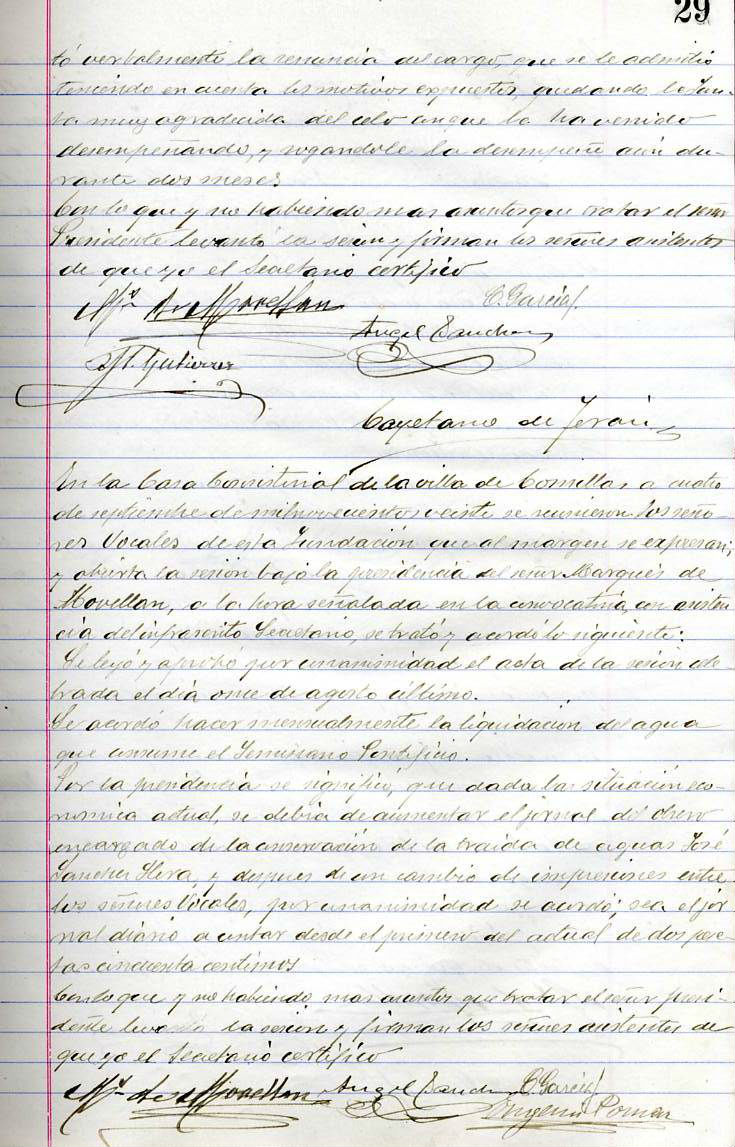 29
tó verbalmente la renuncia del cargo, que se le admitió
teniendo en cuenta los motivos expuestos, quedando la Jun-
ta muy agradecida del celo conque la ha venido
desempeñando, y rogandole la desempeñe aún du-
rante dos meses
Con lo que y no habiendo mas asuntos que tratar el señor
Presidente levantó la sesion y firman los señores asistentes
de que yo el Secretario certifico
Ms de Movellan
C. García
Angel Sanchez
Gutierrez
Cayetano de Terán
En la Casa Consistorial de la villa de Comillas a cuatro
de septiembre de mil novecientos veinte se reunieron los seño
res Vocales de esta Fundación que al margen se expresan;
y abierta la sesión bajo la presidencia del señor Marqués de
Movellan, a la hora señalada en la convocatoria, con asisten
cia del infrascrito Secretario, se trató y acordó lo siguiente:
Se leyó y aprobó por unanimidad el acta de la sesion cele
brada el día once de agosto último.
Se acordó hacer mensualmente la liquidación del agua
que consume el Seminario Pontificio.
Por la presidencia se significó, que dada la situación eco-
nomica actual, se debia de aumentar el jornal del obrero
encargado de la conservación de la traida de aguas José
Sanchez y despues de un cambio de impresiones entre
los señores Vocales, por unanimidad se acordó; sea el jor
nal diario a contar desde el primero del actual de dos pese
tas cincuenta centimos
Con lo que y no habiendo mas asuntos que tratar el señor presi-
dente levantó la sesion y firman los señores asistentes de
que yo el Secretario certifico
Ms de Movellan
Angel Sanchez
C. García
Eugenio Pomar